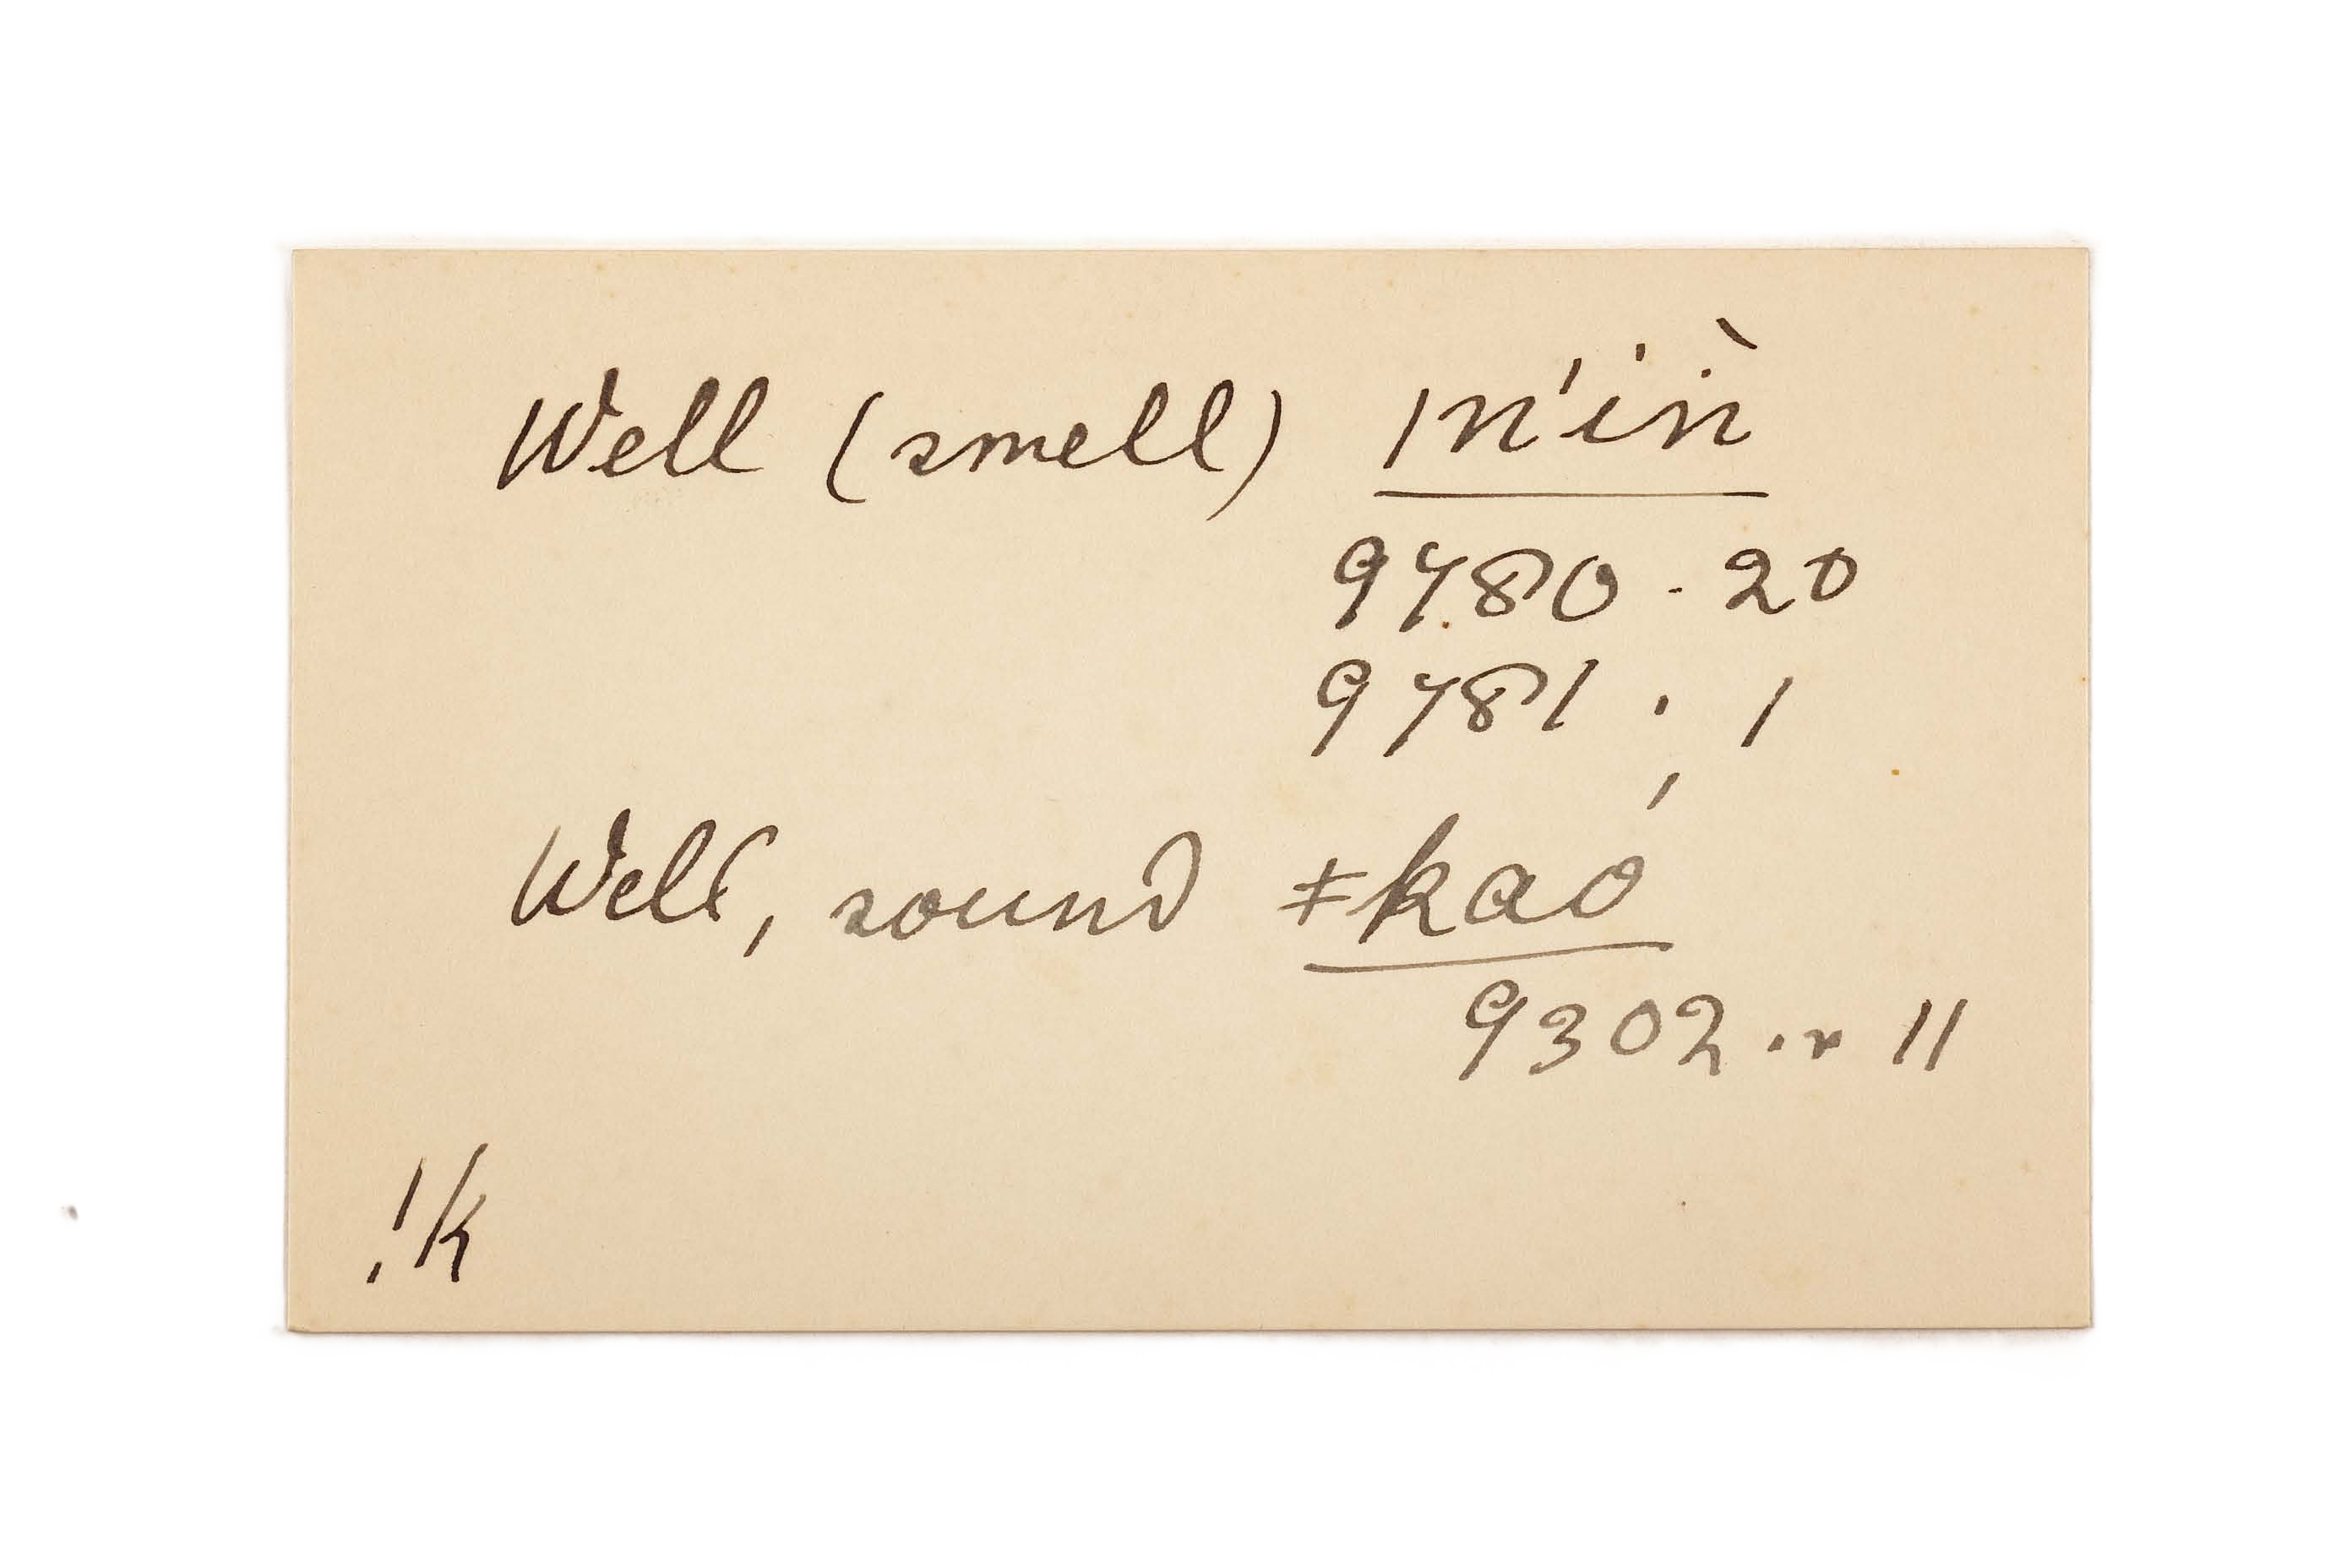 Well (smell) ǀn'iṅ̀
9780 . 20
9781 . 1
Well, sound ǂkaó
9302 . r 11
!k